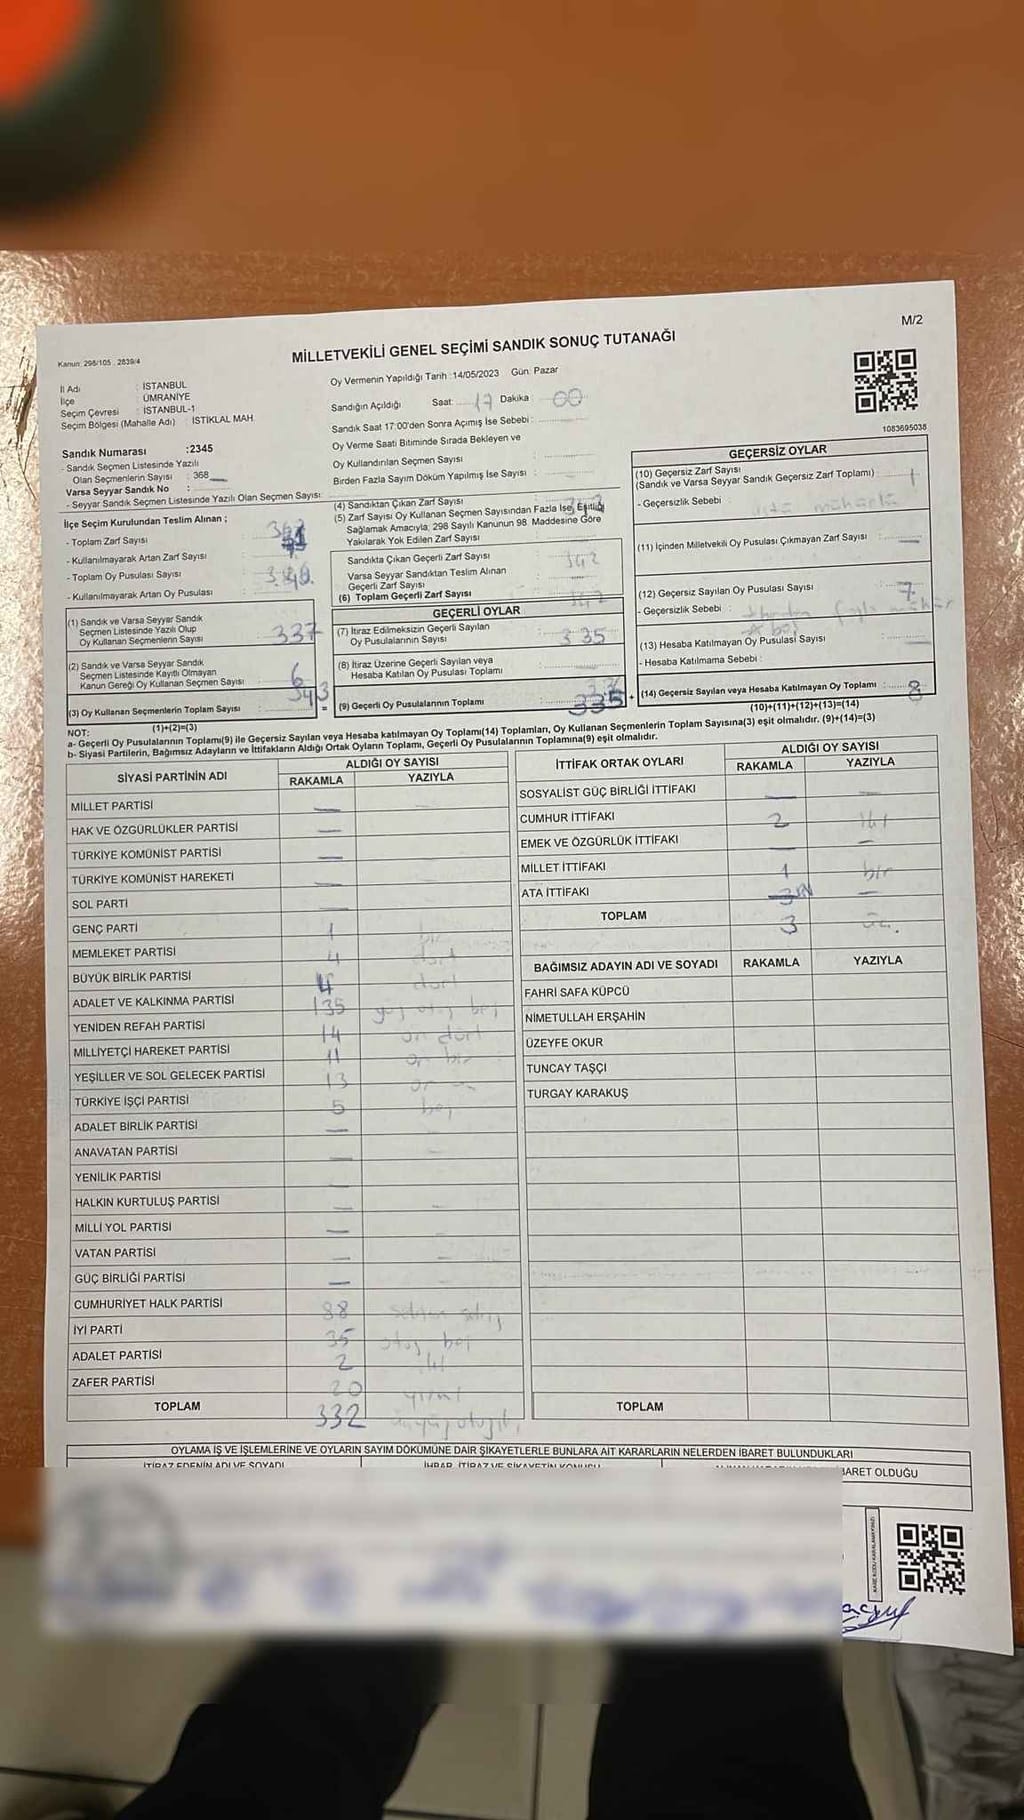 M/2
Kanun: 298/105 , 2839/4
MİLLETVEKİLİ GENEL SEÇİMİ SANDIK SONUÇ TUTANAĞI
1083695038
İl Adı : İSTANBUL
İlçe : ÜMRANİYE
Seçim Çevresi : İSTANBUL-1
Seçim Bölgesi (Mahalle Adı) : İSTİKLAL MAH
Sandık Numarası :2345
- Sandık Seçmen Listesinde Yazılı
Olan Seçmenlerin Sayısı : 368
Varsa Seyyar Sandık No :
- Seyyar Sandık Seçmen Listesinde Yazılı Olan Seçmen Sayısı:
Oy Vermenin Yapıldığı Tarih :14/05/2023 Gün: Pazar
Sandığın Açıldığı Saat: 17 Dakika : 00
Sandık Saat 17:00'den Sonra Açımış İse Sebebi :
Oy Verme Saati Bitiminde Sırada Bekleyen ve
Oy Kullandırılan Seçmen Sayısı
Birden Fazla Sayım Döküm Yapılmış İse Sayısı :
İlçe Seçim Kurulundan Teslim Alınan ;
- Toplam Zarf Sayısı
- Kullanılmayarak Artan Zarf Sayısı
- Toplam Oy Pusulası Sayısı
- Kullanılmayarak Artan Oy Pusulası
(1) Sandık ve Varsa Seyyar Sandık
Seçmen Listesinde Yazılı Olup
Oy Kullanan Seçmenlerin Sayısı : 337
(2) Sandık ve Varsa Seyyar Sandık
Seçmen Listesinde Kayıtlı Olmayan
Kanun Gereği Oy Kullanan Seçmen Sayısı : 6
(3) Oy Kullanan Seçmenlerin Toplam Sayısı : 343
(1)+(2)=(3)
(4) Sandıktan Çıkan Zarf Sayısı 343
(5) Zarf Sayısı Oy Kullanan Seçmen Sayısından Fazla İse, Eşitliği
Sağlamak Amacıyla; 298 Sayılı Kanunun 98. Maddesine Göre
Yakılarak Yok Edilen Zarf Sayısı
Sandıkta Çıkan Geçerli Zarf Sayısı 342
Varsa Seyyar Sandıktan Teslim Alınan
Geçerli Zarf Sayısı
(6) Toplam Geçerli Zarf Sayısı 342
GEÇERLİ OYLAR
(7) İtiraz Edilmeksizin Geçerli Sayılan
Oy Pusulalarının Sayısı : 335
(8) İtiraz Üzerine Geçerli Sayılan veya
Hesaba Katılan Oy Pusulası Toplamı
(9) Geçerli Oy Pusulalarının Toplamı : 335
GEÇERSİZ OYLAR
(10) Geçersiz Zarf Sayısı
(Sandık ve Varsa Seyyar Sandık Geçersiz Zarf Toplamı) : 1
- Geçersizlik Sebebi :
(11) İçinden Milletvekili Oy Pusulası Çıkmayan Zarf Sayısı : —
(12) Geçersiz Sayılan Oy Pusulası Sayısı : 7
- Geçersizlik Sebebi : fazla mühür
(13) Hesaba Katılmayan Oy Pusulası Sayısı : —
- Hesaba Katılmama Sebebi :
(14) Geçersiz Sayılan veya Hesaba Katılmayan Oy Toplamı : 8
(10)+(11)+(12)+(13)=(14)
NOT:
a- Geçerli Oy Pusulalarının Toplamı(9) ile Geçersiz Sayılan veya Hesaba katılmayan Oy Toplamı(14) Toplamları, Oy Kullanan Seçmenlerin Toplam Sayısına(3) eşit olmalıdır. (9)+(14)=(3)
b- Siyasi Partilerin, Bağımsız Adayların ve İttifakların Aldığı Ortak Oyların Toplamı, Geçerli Oy Pusulalarının Toplamına(9) eşit olmalıdır.
SİYASİ PARTİNİN ADI ALDIĞI OY SAYISI
RAKAMLA YAZIYLA
MİLLET PARTİSİ —
HAK VE ÖZGÜRLÜKLER PARTİSİ —
TÜRKİYE KOMÜNİST PARTİSİ —
TÜRKİYE KOMÜNİST HAREKETİ —
SOL PARTİ —
GENÇ PARTİ 1 bir
MEMLEKET PARTİSİ 4 dört
BÜYÜK BİRLİK PARTİSİ 4 dört
ADALET VE KALKINMA PARTİSİ 135 yüz otuz beş
YENİDEN REFAH PARTİSİ 14 on dört
MİLLİYETÇİ HAREKET PARTİSİ 11 on bir
YEŞİLLER VE SOL GELECEK PARTİSİ 13 on
TÜRKİYE İŞÇİ PARTİSİ 5 beş
ADALET BİRLİK PARTİSİ —
ANAVATAN PARTİSİ —
YENİLİK PARTİSİ —
HALKIN KURTULUŞ PARTİSİ —
MİLLİ YOL PARTİSİ —
VATAN PARTİSİ —
GÜÇ BİRLİĞİ PARTİSİ —
CUMHURİYET HALK PARTİSİ 88 seksen sekiz
İYİ PARTİ 35 otuz beş
ADALET PARTİSİ 2 iki
ZAFER PARTİSİ 20 yirmi
TOPLAM 332 üçyüz otuziki
İTTİFAK ORTAK OYLARI ALDIĞI OY SAYISI
RAKAMLA YAZIYLA
SOSYALİST GÜÇ BİRLİĞİ İTTİFAKI — —
CUMHUR İTTİFAKI 2 iki
EMEK VE ÖZGÜRLÜK İTTİFAKI — —
MİLLET İTTİFAKI 1 bir
ATA İTTİFAKI —
TOPLAM 3 üç.
BAĞIMSIZ ADAYIN ADI VE SOYADI RAKAMLA YAZIYLA
FAHRİ SAFA KÜPCÜ
NİMETULLAH ERŞAHİN
ÜZEYFE OKUR
TUNCAY TAŞÇI
TURGAY KARAKUŞ
TOPLAM
OYLAMA İŞ VE İŞLEMLERİNE VE OYLARIN SAYIM DÖKÜMÜNE DAİR ŞİKAYETLERLE BUNLARA AİT KARARLARIN NELERDEN İBARET BULUNDUKLARI
İTİRAZ EDENİN ADI VE SOYADI İHBAR, İTİRAZ VE ŞİKAYETİN KONUSU BARET OLDUĞU